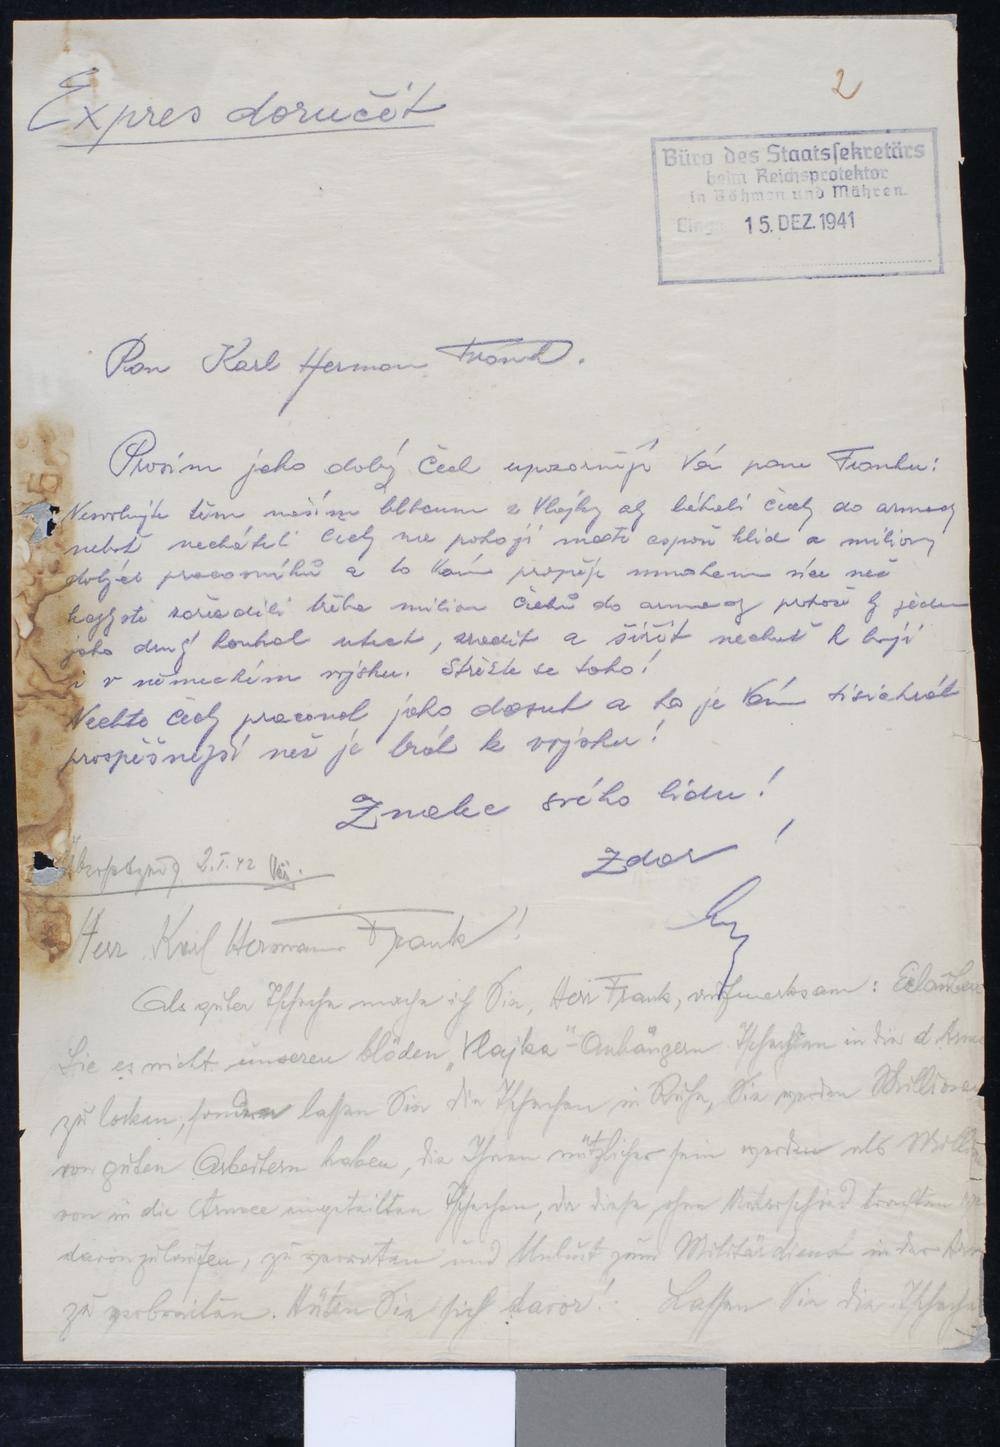 Expres doručit
2
Büro des Staatssekretärs
beim Reichsprotektor
in Böhmen und Mähren.
Eing. 15. DEZ. 1941
Pan Karl Herman Frank.
Prosím jako dobrý Čech upozorňuji Vás pane Franku:
Nevolujte těm našim blbcum z Vlajky aby lákali Čechy do armady
nebot necháteli Čechy na pokoji máte aspoň klid a miliony
dobrých pracovníků a to Vám prospěje mnohem více než
kdyby ste zařadili třeba milion Čechů do armady protože by jeden
jako druhý koukal utect, zradit a šířit nechuť k boji
i v německém vojsku. Střežte se toho!
Nechte Čechy pracovat jako dosud a to je Vám tisíckrát
prospěšnější než je brát k vojsku!
Znalec svého lidu!
Zdar!
Übersetzung 2.I.42
Herr Karl Hermann Frank!
Als guter Tscheche mache ich Sie, Herr Frank, aufmerksam: Erlauben
Sie es nicht unseren blöden "Vlajka"-Anhängern Tschechen in die d. Armee
zu locken, sondern lassen Sie die Tschechen in Ruhe, Sie werden Millionen
von guten Arbeitern haben, die Ihnen nützlicher sein werden als Million
von in die Armee eingeteilten Tschechen, da diese ohne Unterschied trachten
davonzulaufen, zu verraten und Unlust zum Militärdienst in der Armee
zu verbreiten. Hüten Sie sich davor! Lassen Sie die Tschechen